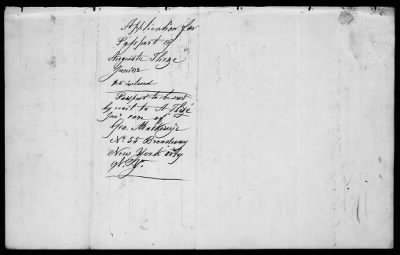 Application for
Passport of
Auguste Thezé
Junior
Passport to be sent
by mail to A. Thezé
Junr care of
Geo.
No 55 Broadway
New York City
N.Y.